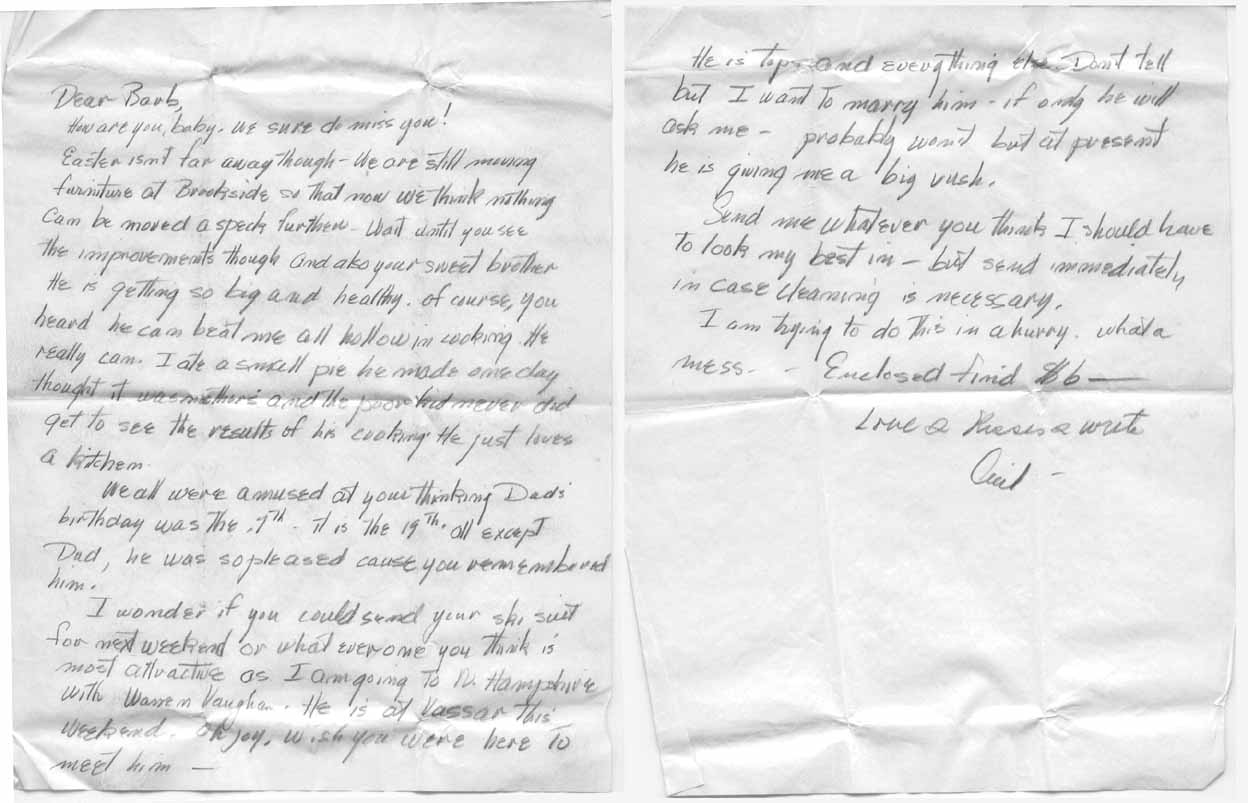 Dear Barb,
How are you, baby. We sure do miss you!
Easter isn't far away though - We are still moving
furniture at Brookside so that now we think nothing
can be moved a speck further - Wait until you see
the improvements though and also your sweet brother
He is getting so big and healthy. Of course, you
heard he can beat me all hollow in cooking. He
really can. I ate a small pie he made one day
thought it was mother's and the poor kid never did
get to see the results of his cooking. He just loves
a kitchen.
We all were amused at your thinking Dad's
birthday was the 17th. It is the 19th. all except
Dad, he was so pleased cause you remembered
him.
I wonder if you could send your ski suit
for next weekend or what everone you think is
most attractive as I am going to N. Hampshire
with Warren Vaughan. He is at Vassar this
weekend. Oh joy. Wish you were here to
meet him —
He is tops and everything else. Don't tell
but I want to marry him - if only he will
ask me - probably won't but at present
he is giving me a big rush.
Send me whatever you think I should have
to look my best in - but send immediately
in case cleaning is necessary.
I am trying to do this in a hurry. what a
mess. - Enclosed find $6 —
Love & Kisses & write